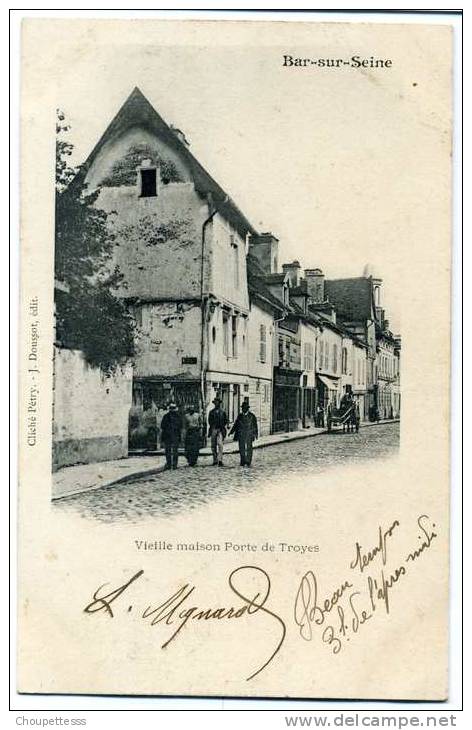 Bar-sur-Seine
Cliché Pétry. - J. Doussot, édit.
Vieille maison Porte de Troyes
L. Mignard
Beau temps
3h. de l'après midi
Choupettesss
www.delcampe.net